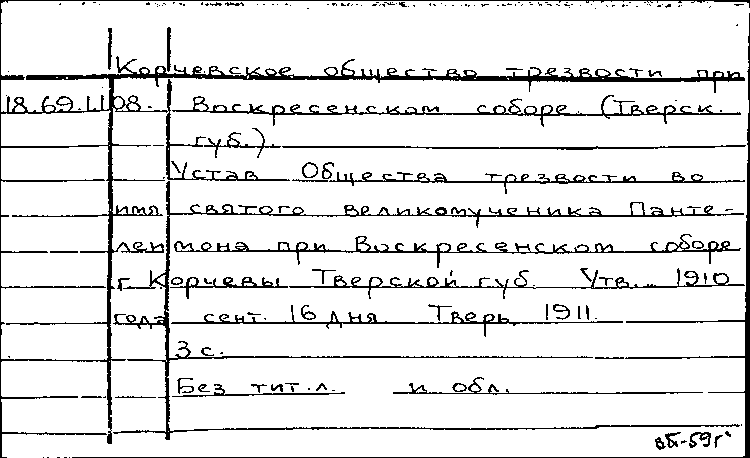 Корчевское общество трезвости при
18.69.11.08. Воскресенском соборе. (Тверск.
губ.).
Устав Общества трезвости во
имя святого великомученика Панте-
леймона при Воскресенском соборе
г. Корчевы Тверской губ. Утв. 1910
года сент. 16 дня. Тверь, 1911.
3 с.
Без тит. л. и обл.
вб-59г